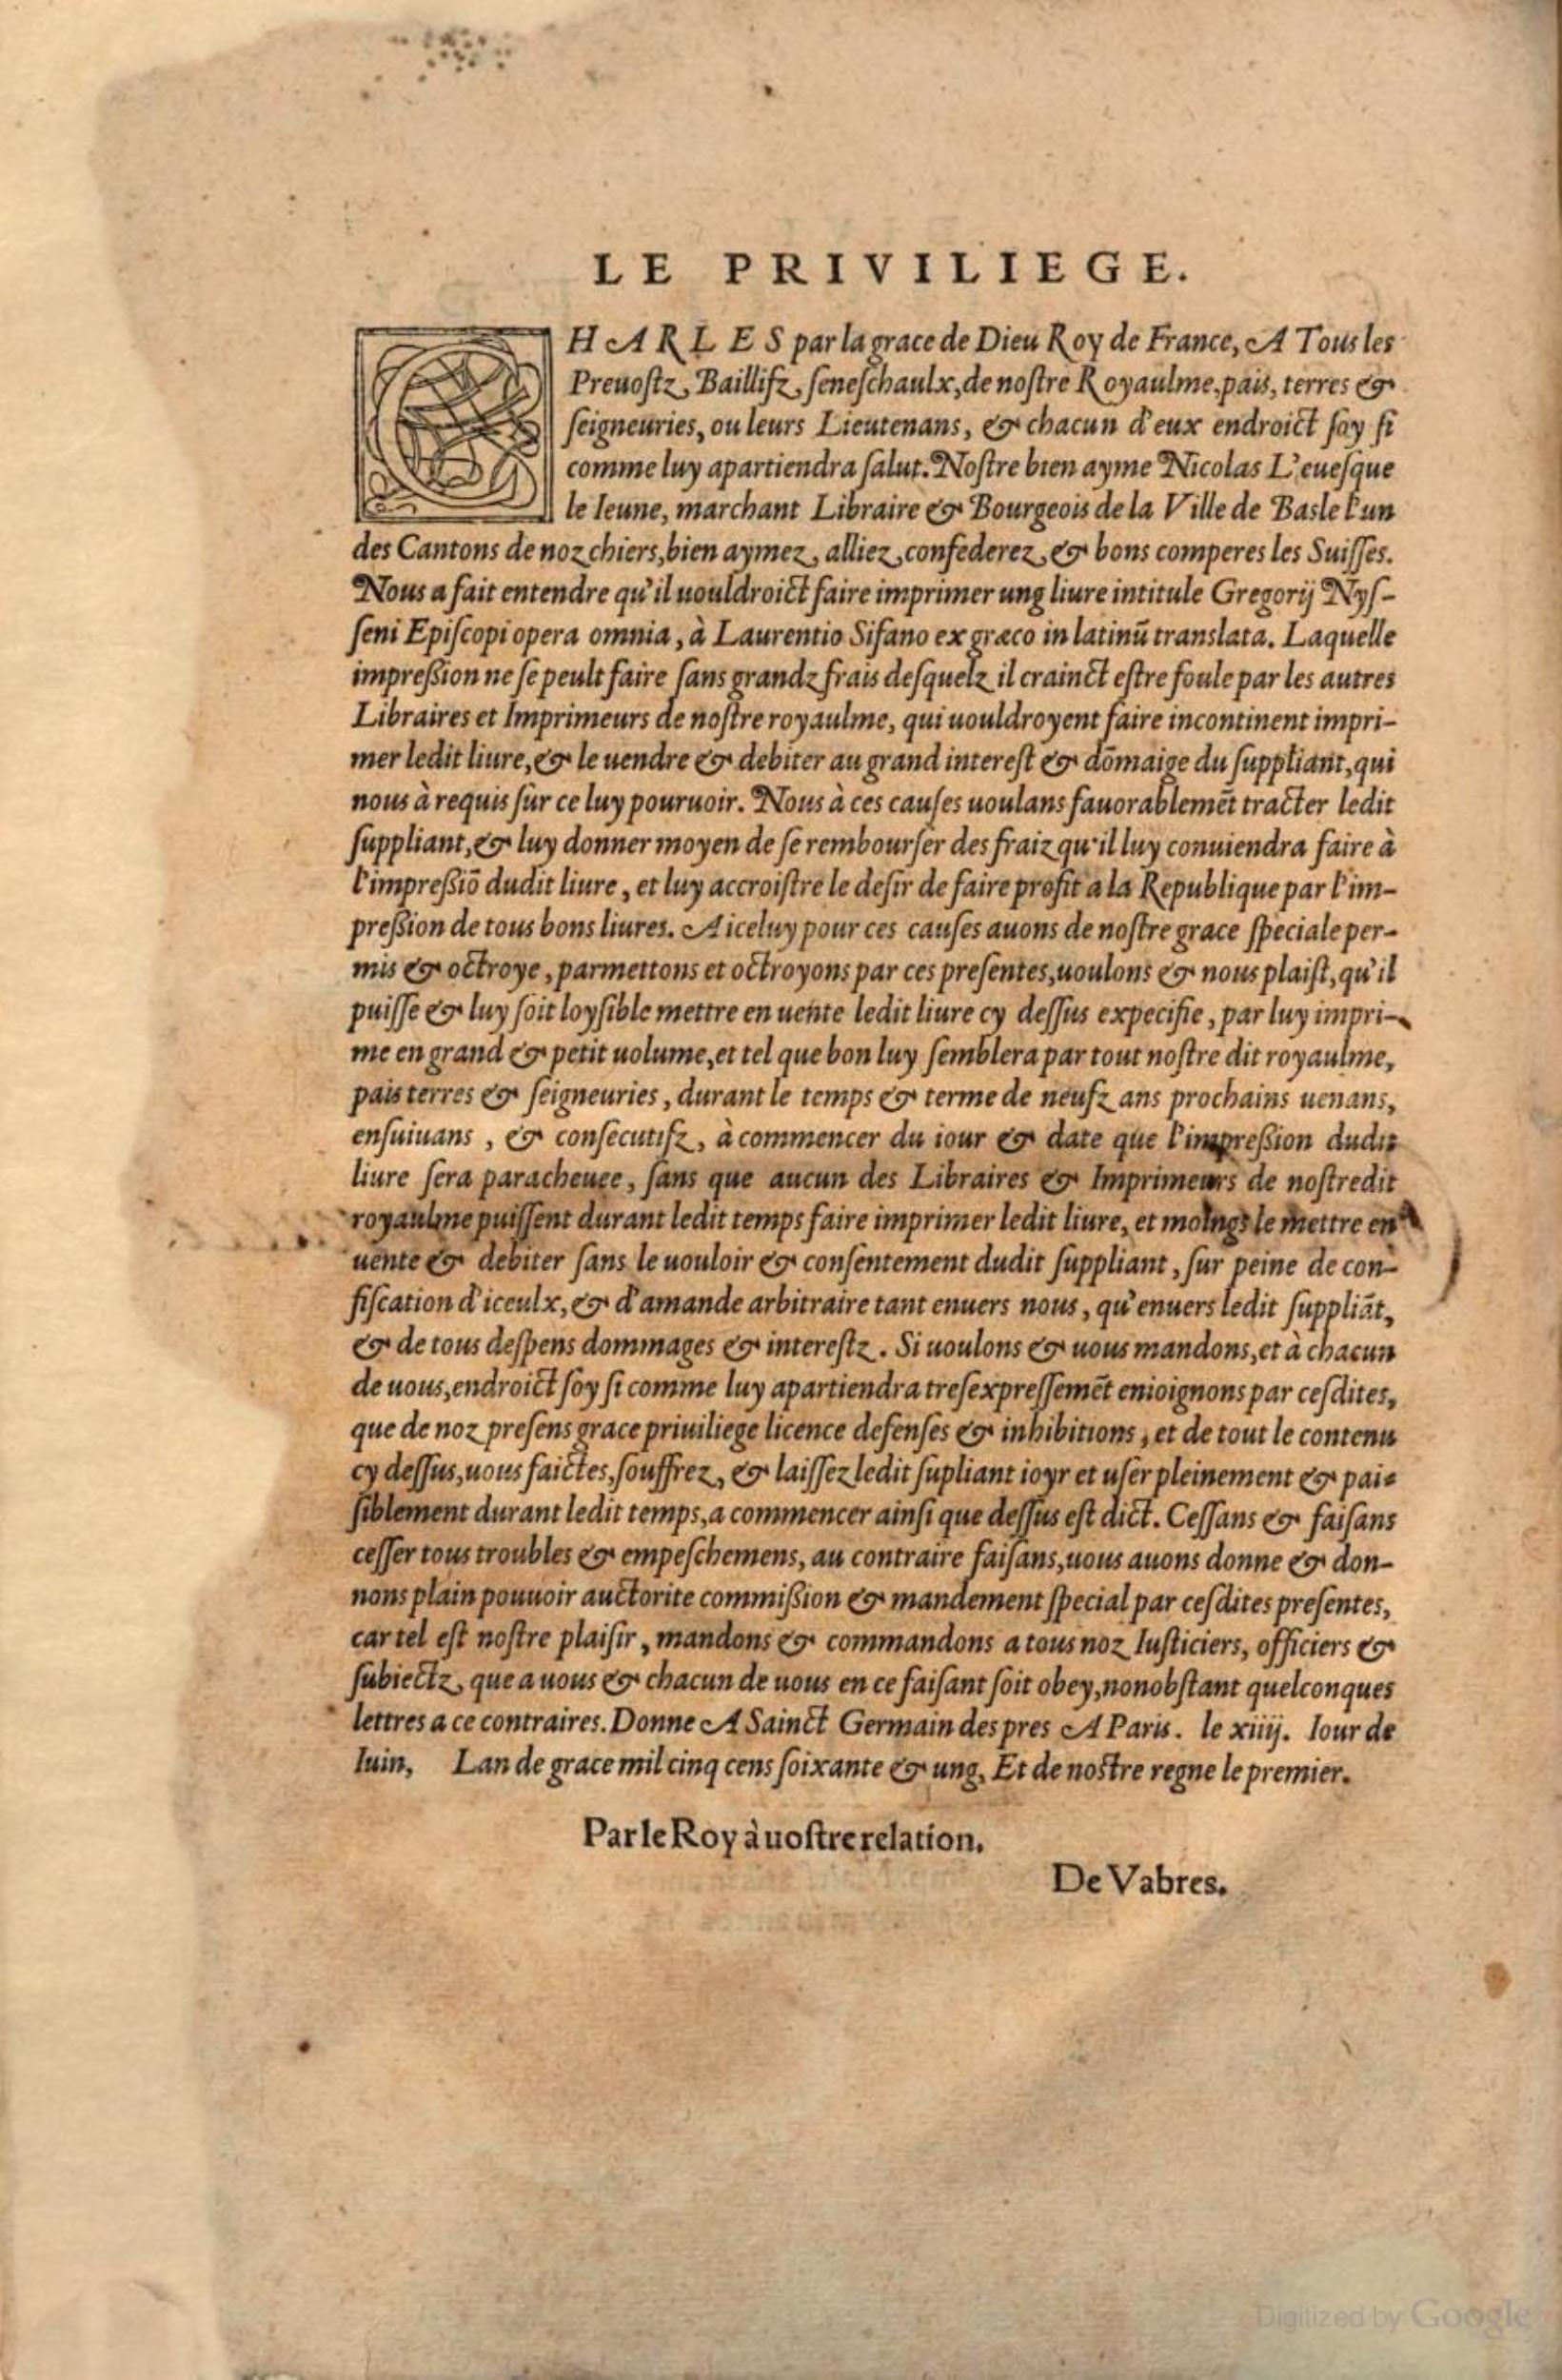 LE PRIVILIEGE.
CHARLES par la grace de Dieu Roy de France, A Tous les
Preuostz, Baillifz, seneschaulx, de nostre Royaulme, païs, terres &
seigneuries, ou leurs Lieutenans, & chacun d'eux endroict soy si
comme luy apartiendra salut. Nostre bien ayme Nicolas L'euesque
le Ieune, marchant Libraire & Bourgeois de la Ville de Basle l'un
des Cantons de noz chiers, bien aymez, alliez, confederez, & bons comperes les Suisses.
Nous a fait entendre qu'il uouldroict faire imprimer ung liure intitule Gregorij Nys-
seni Episcopi opera omnia, à Laurentio Sifano ex græco in latinū translata. Laquelle
impreßion ne se peult faire sans grandz frais desquelz il crainct estre foule par les autres
Libraires et Imprimeurs de nostre royaulme, qui uouldroyent faire incontinent impri-
mer ledit liure, & le uendre & debiter au grand interest & dōmaige du suppliant, qui
nous à requis sur ce luy pouruoir. Nous à ces causes uoulans fauorablemēt tracter ledit
suppliant, & luy donner moyen de se rembourser des fraiz qu'il luy conuiendra faire à
l'impreßiō dudit liure, et luy accroistre le desir de faire profit a la Republique par l'im-
preßion de tous bons liures. A iceluy pour ces causes auons de nostre grace speciale per-
mis & octroye, parmettons et octroyons par ces presentes, uoulons & nous plaist, qu'il
puisse & luy soit loysible mettre en uente ledit liure cy dessus expecifie, par luy impri-
me en grand & petit uolume, et tel que bon luy semblera par tout nostre dit royaulme,
païs terres & seigneuries, durant le temps & terme de neufz ans prochains uenans,
ensuiuans, & consecutifz, à commencer du iour & date que l'impreßion dudit
liure sera paracheuee, sans que aucun des Libraires & Imprimeurs de nostredit
royaulme puissent durant ledit temps faire imprimer ledit liure, et moings le mettre en
uente & debiter sans le uouloir & consentement dudit suppliant, sur peine de con-
fiscation d'iceulx, & d'amande arbitraire tant enuers nous, qu'enuers ledit suppliāt,
& de tous despens dommages & interestz. Si uoulons & uous mandons, et à chacun
de uous, endroict soy si comme luy apartiendra tresexpressemēt enioignons par cesdites,
que de noz presens grace priuiliege licence defenses & inhibitions, et de tout le contenu
cy dessus, uous faictes, souffrez, & laissez ledit supliant ioyr et user pleinement & pai-
siblement durant ledit temps, a commencer ainsi que dessus est dict. Cessans & faisans
cesser tous troubles & empeschemens, au contraire faisans, uous auons donne & don-
nons plain pouuoir auctorite commißion & mandement special par cesdites presentes,
car tel est nostre plaisir, mandons & commandons a tous noz Iusticiers, officiers &
subiectz, que a uous & chacun de uous en ce faisant soit obey, nonobstant quelconques
lettres a ce contraires. Donne A Sainct Germain des pres A Paris. le xiiij. Iour de
Iuin, Lan de grace mil cinq cens soixante & ung, Et de nostre regne le premier.
Par le Roy à uostre relation.
De Vabres.
Digitized by Google